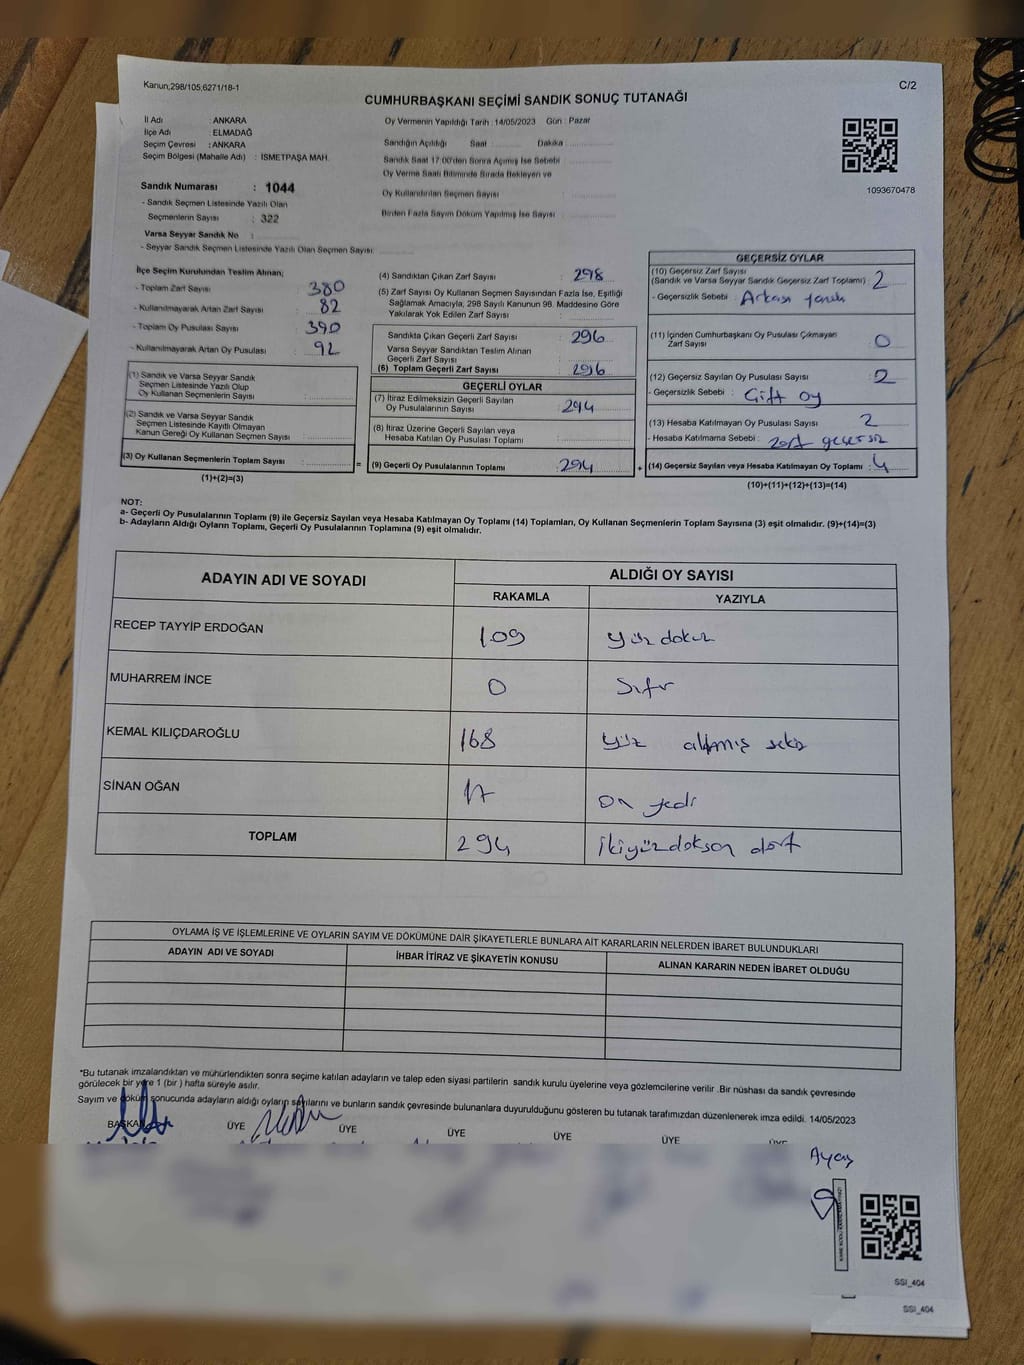 Kanun,298/105,6271/18-1
C/2
CUMHURBAŞKANI SEÇİMİ SANDIK SONUÇ TUTANAĞI
İl Adı : ANKARA
İlçe Adı : ELMADAĞ
Seçim Çevresi : ANKARA
Seçim Bölgesi (Mahalle Adı) : İSMETPAŞA MAH.
Sandık Numarası : 1044
- Sandık Seçmen Listesinde Yazılı Olan
Seçmenlerin Sayısı : 322
Varsa Seyyar Sandık No :
- Seyyar Sandık Seçmen Listesinde Yazılı Olan Seçmen Sayısı:
Oy Vermenin Yapıldığı Tarih : 14/05/2023 Gün : Pazar
Sandığın Açıldığı Saat Dakika
Sandık Saat 17:00'den Sonra Açılmış İse Sebebi
Oy Verme Saati Bitiminde Sırada Bekleyen ve
Oy Kullandırılan Seçmen Sayısı :
Birden Fazla Sayım Döküm Yapılmış İse Sayısı :
1093670478
İlçe Seçim Kurulundan Teslim Alınan;
- Toplam Zarf Sayısı : 380
- Kullanılmayarak Artan Zarf Sayısı : 82
- Toplam Oy Pusulası Sayısı : 390
- Kullanılmayarak Artan Oy Pusulası : 92
(1) Sandık ve Varsa Seyyar Sandık
Seçmen Listesinde Yazılı Olup
Oy Kullanan Seçmenlerin Sayısı :
(2) Sandık ve Varsa Seyyar Sandık
Seçmen Listesinde Kayıtlı Olmayan
Kanun Gereği Oy Kullanan Seçmen Sayısı :
(3) Oy Kullanan Seçmenlerin Toplam Sayısı : =
(1)+(2)=(3)
(4) Sandıktan Çıkan Zarf Sayısı : 298
(5) Zarf Sayısı Oy Kullanan Seçmen Sayısından Fazla İse, Eşitliği
Sağlamak Amacıyla, 298 Sayılı Kanunun 98. Maddesine Göre
Yakılarak Yok Edilen Zarf Sayısı :
Sandıkta Çıkan Geçerli Zarf Sayısı : 296
Varsa Seyyar Sandıktan Teslim Alınan
Geçerli Zarf Sayısı :
(6) Toplam Geçerli Zarf Sayısı : 296
GEÇERLİ OYLAR
(7) İtiraz Edilmeksizin Geçerli Sayılan
Oy Pusulalarının Sayısı : 294
(8) İtiraz Üzerine Geçerli Sayılan veya
Hesaba Katılan Oy Pusulası Toplamı :
(9) Geçerli Oy Pusulalarının Toplamı : 294 +
GEÇERSİZ OYLAR
(10) Geçersiz Zarf Sayısı
(Sandık ve Varsa Seyyar Sandık Geçersiz Zarf Toplamı) : 2
- Geçersizlik Sebebi : Arkası
(11) İçinden Cumhurbaşkanı Oy Pusulası Çıkmayan
Zarf Sayısı : 0
(12) Geçersiz Sayılan Oy Pusulası Sayısı : 2
- Geçersizlik Sebebi : Çift oy
(13) Hesaba Katılmayan Oy Pusulası Sayısı : 2
- Hesaba Katılmama Sebebi : zarf geçersiz
(14) Geçersiz Sayılan veya Hesaba Katılmayan Oy Toplamı : 4
(10)+(11)+(12)+(13)=(14)
NOT:
a- Geçerli Oy Pusulalarının Toplamı (9) ile Geçersiz Sayılan veya Hesaba Katılmayan Oy Toplamı (14) Toplamları, Oy Kullanan Seçmenlerin Toplam Sayısına (3) eşit olmalıdır. (9)+(14)=(3)
b- Adayların Aldığı Oyların Toplamı, Geçerli Oy Pusulalarının Toplamına (9) eşit olmalıdır.
ADAYIN ADI VE SOYADI
ALDIĞI OY SAYISI
RAKAMLA YAZIYLA
RECEP TAYYİP ERDOĞAN 109 yüz dokuz
MUHARREM İNCE 0 Sıfır
KEMAL KILIÇDAROĞLU 168 yüz altmış sekiz
SİNAN OĞAN 17 on yedi
TOPLAM 294 ikiyüzdoksan dört
OYLAMA İŞ VE İŞLEMLERİNE VE OYLARIN SAYIM VE DÖKÜMÜNE DAİR ŞİKAYETLERLE BUNLARA AİT KARARLARIN NELERDEN İBARET BULUNDUKLARI
ADAYIN ADI VE SOYADI İHBAR İTİRAZ VE ŞİKAYETİN KONUSU ALINAN KARARIN NEDEN İBARET OLDUĞU
*Bu tutanak imzalandıktan ve mühürlendikten sonra seçime katılan adayların ve talep eden siyasi partilerin sandık kurulu üyelerine veya gözlemcilerine verilir .Bir nüshası da sandık çevresinde
görülecek bir yere 1 (bir ) hafta süreyle asılır.
Sayım ve döküm sonucunda adayların aldığı oyların sayılarını ve bunların sandık çevresinde bulunanlara duyurulduğunu gösteren bu tutanak tarafımızdan düzenlenerek imza edildi. 14/05/2023
BAŞKAN ÜYE ÜYE ÜYE ÜYE ÜYE ÜYE
SSI_404
SSI_404